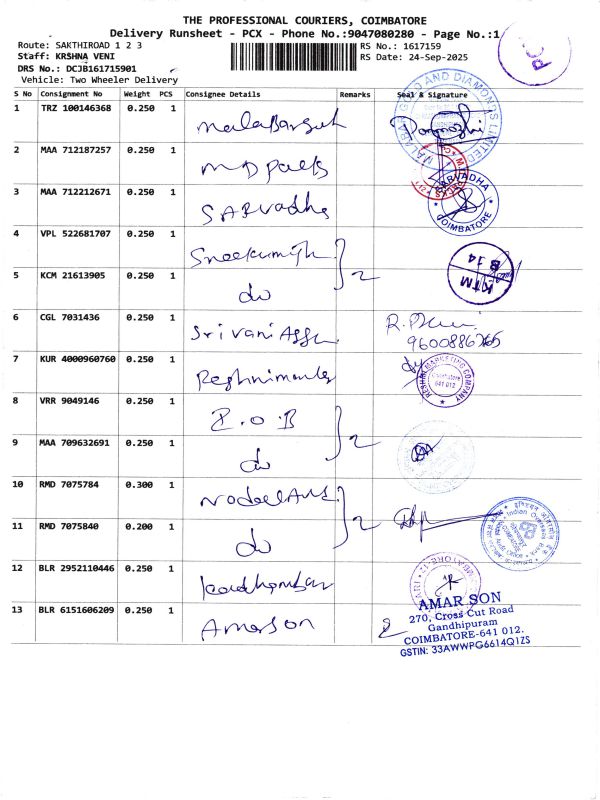 THE PROFESSIONAL COURIERS, COIMBATORE
Delivery Runsheet - PCX - Phone No.:9047080280 - Page No.:1
Route: SAKTHIROAD 1 2 3
RS No.: 1617159
Staff: KRSHNA VENI
RS Date: 24-Sep-2025
DRS No.: DCJB161715901
Vehicle: Two Wheeler Delivery
S No Consignment No Weight PCS Consignee Details Remarks Seal & Signature
1 TRZ 100146368 0.250 1
MALABAR GOLD AND DIAMONDS LIMITED
2 MAA 712187257 0.250 1 MD
3 MAA 712212671 0.250 1 SARVadha
SARVADHA
COIMBATORE
4 VPL 522681707 0.250 1
2
KTM
B 14
5 KCM 21613905 0.250 1 do
6 CGL 7031436 0.250 1 Srivani
R.
7 KUR 4000960760 0.250 1
MARKETING COMPANY
Coimbatore
641 012
8 VRR 9049146 0.250 1 I.O.B
2
9 MAA 709632691 0.250 1 do
10 RMD 7075784 0.300 1
2
11 RMD 7075840 0.200 1 do
Indian Overseas Bank
12 BLR 2952110446 0.250 1
13 BLR 6151606209 0.250 1 Amarson
AMAR SON
270, Cross Cut Road
Gandhipuram
COIMBATORE-641 012.
GSTIN: 33AWWPG6614Q1ZS